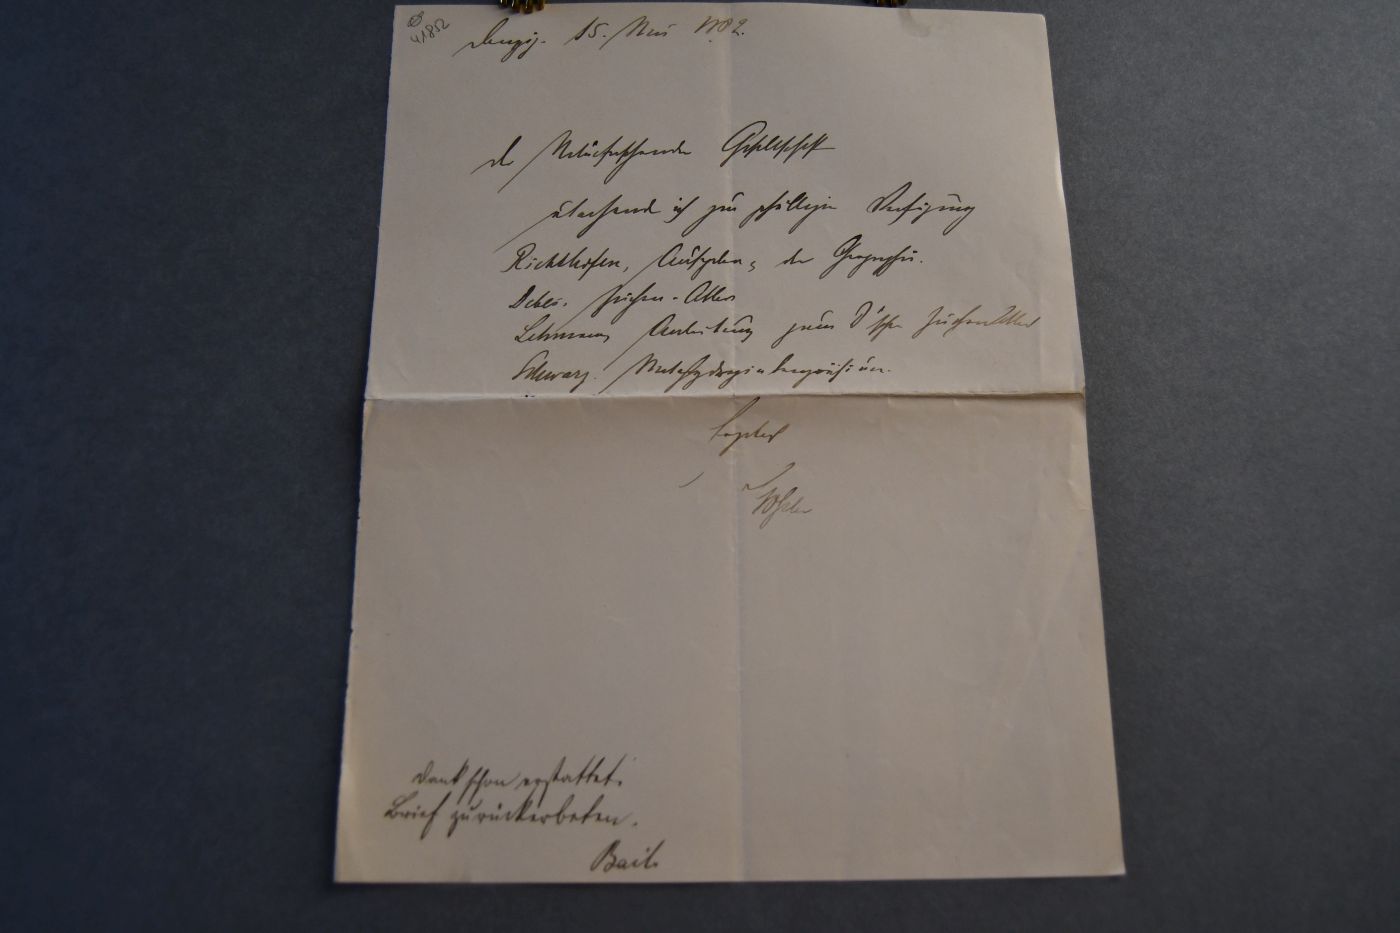 41852
Danzig. 15. Mai
Der Naturforschenden Gesellschaft
übersende ich zur gefälligen Verfügung
Richthofen, Aufgaben der Geographie.
Debes, Zeichen-Atlas
Lehmann, Anleitung zum D'schen Zeichenatlas
Schwarz.
Dank schon erstattet.
Brief zurückerbeten.
Bail.